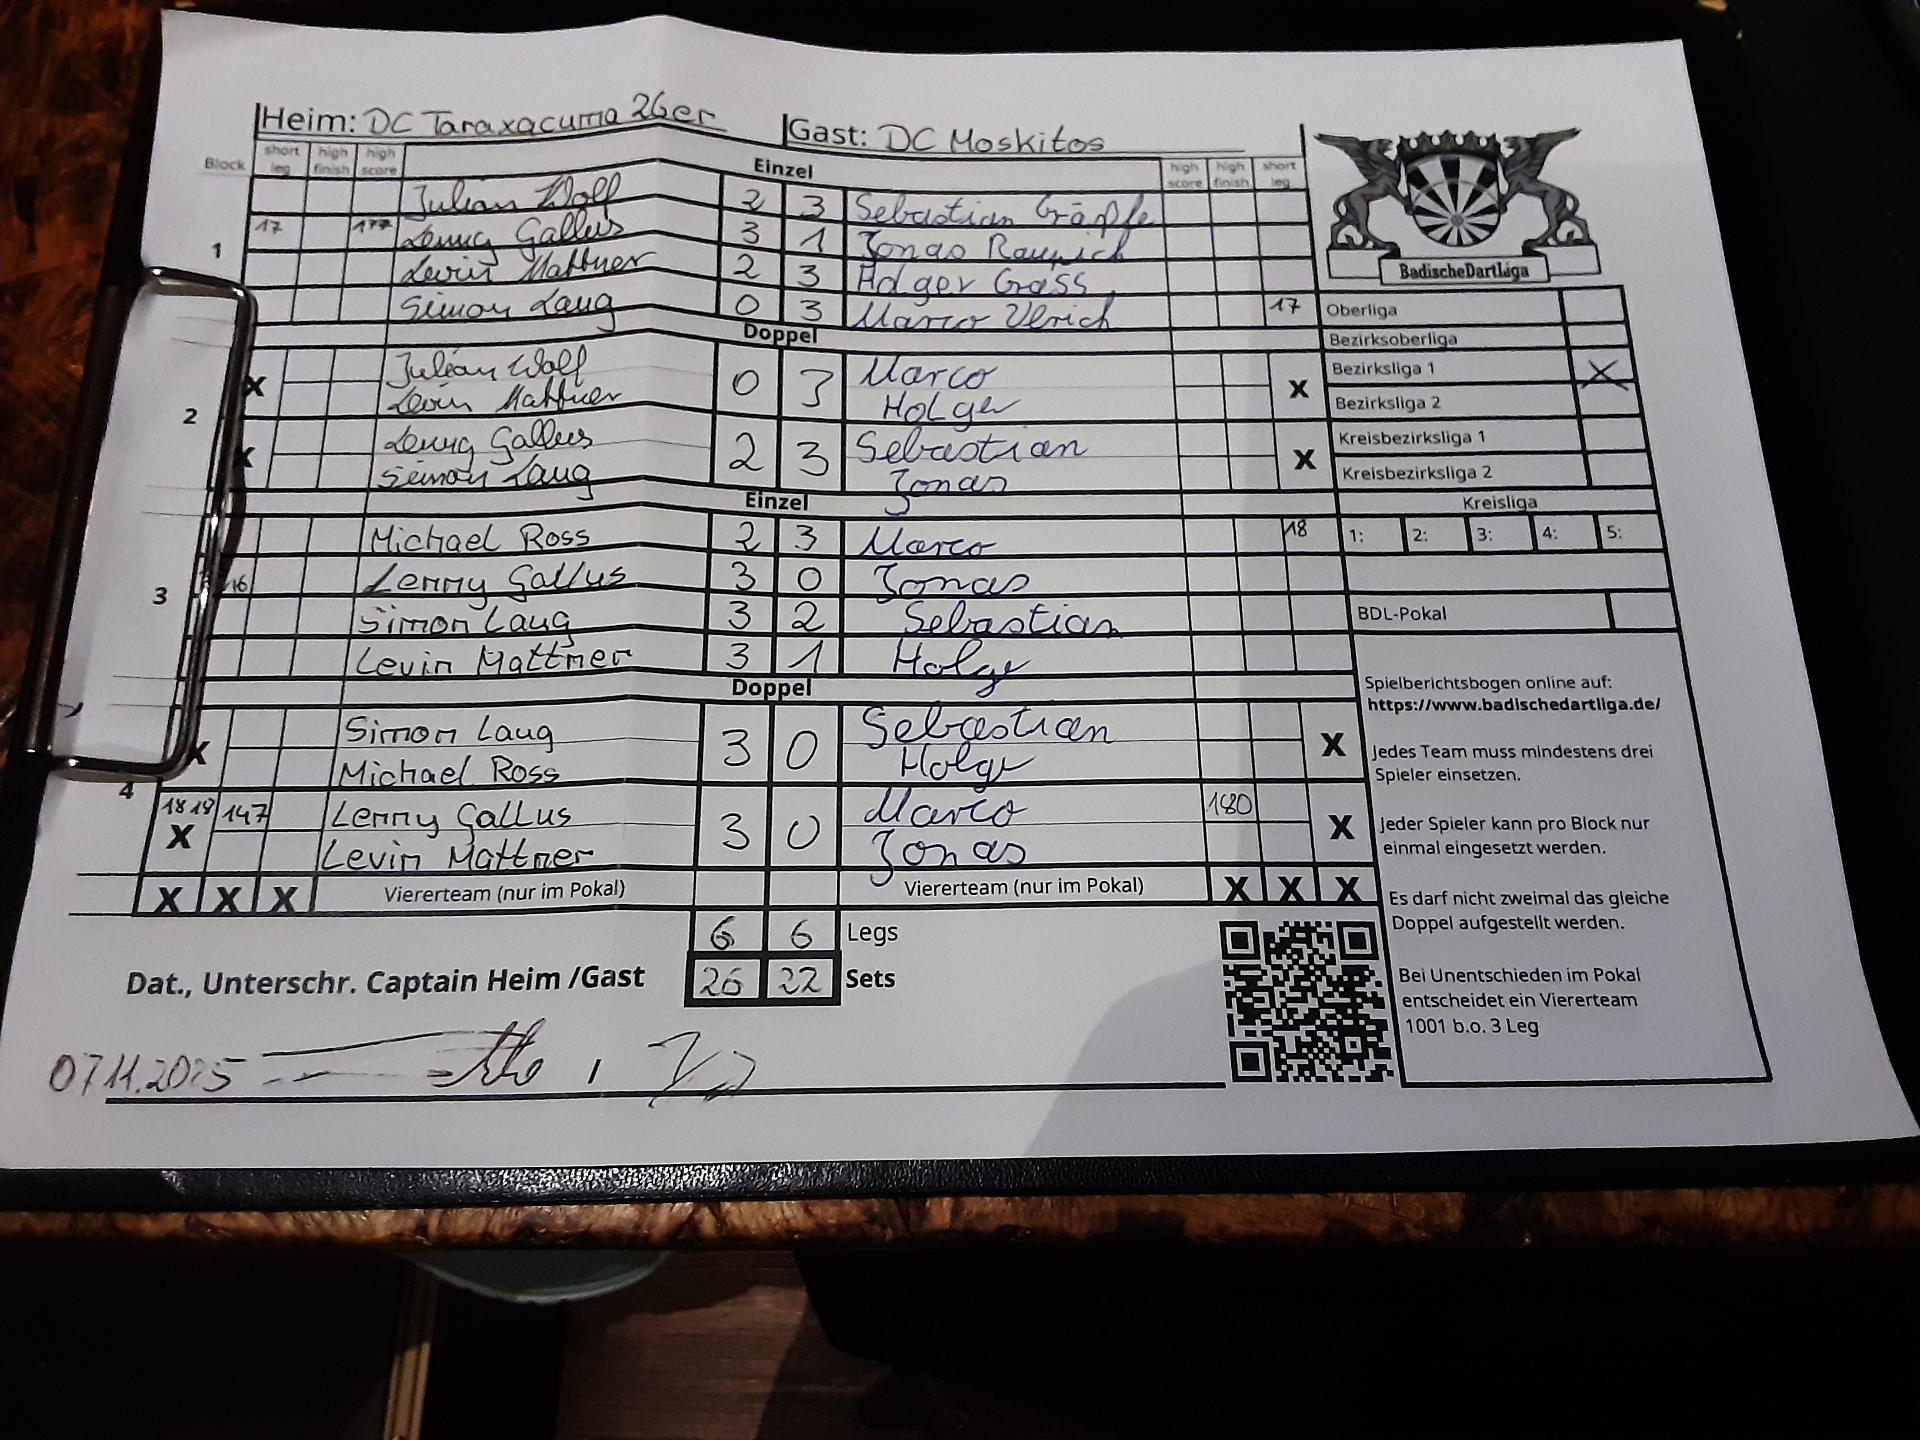 Heim: DC Taraxacuma 26er Gast: DC Moskitos
Block short leg high finish high score Einzel high score high finish short leg
Julian Wolf 2 3 Sebastian Gräpfe
1 17 177 Lenny Gallus 3 1 Jonas
Levin Mattner 2 3 Holger Gross
Simon Laug 0 3 Marco Ulrich 17
Doppel
2 X Julian Wolf 0 3 Marco X
Levin Mattner Holger
X Lenny Gallus 2 3 Sebastian X
Simon Laug Jonas
Einzel
3 Michael Ross 2 3 Marco 18
16 Lenny Gallus 3 0 Jonas
Simon Laug 3 2 Sebastian
Levin Mattner 3 1 Holge
Doppel
4 X Simon Laug 3 0 Sebastian X
Michael Ross Holge
18 18 147 Lenny Gallus 3 0 Marco 180
X Levin Mattner Jonas X
X X X Viererteam (nur im Pokal) Viererteam (nur im Pokal) X X X
6 6 Legs
Dat., Unterschr. Captain Heim /Gast 26 22 Sets
07.11.2025 /
BadischeDartLiga
Oberliga
Bezirksoberliga
Bezirksliga 1 X
Bezirksliga 2
Kreisbezirksliga 1
Kreisbezirksliga 2
Kreisliga
1: 2: 3: 4: 5:
BDL-Pokal
Spielberichtsbogen online auf:
https://www.badischedartliga.de/
Jedes Team muss mindestens drei
Spieler einsetzen.
Jeder Spieler kann pro Block nur
einmal eingesetzt werden.
Es darf nicht zweimal das gleiche
Doppel aufgestellt werden.
Bei Unentschieden im Pokal
entscheidet ein Viererteam
1001 b.o. 3 Leg